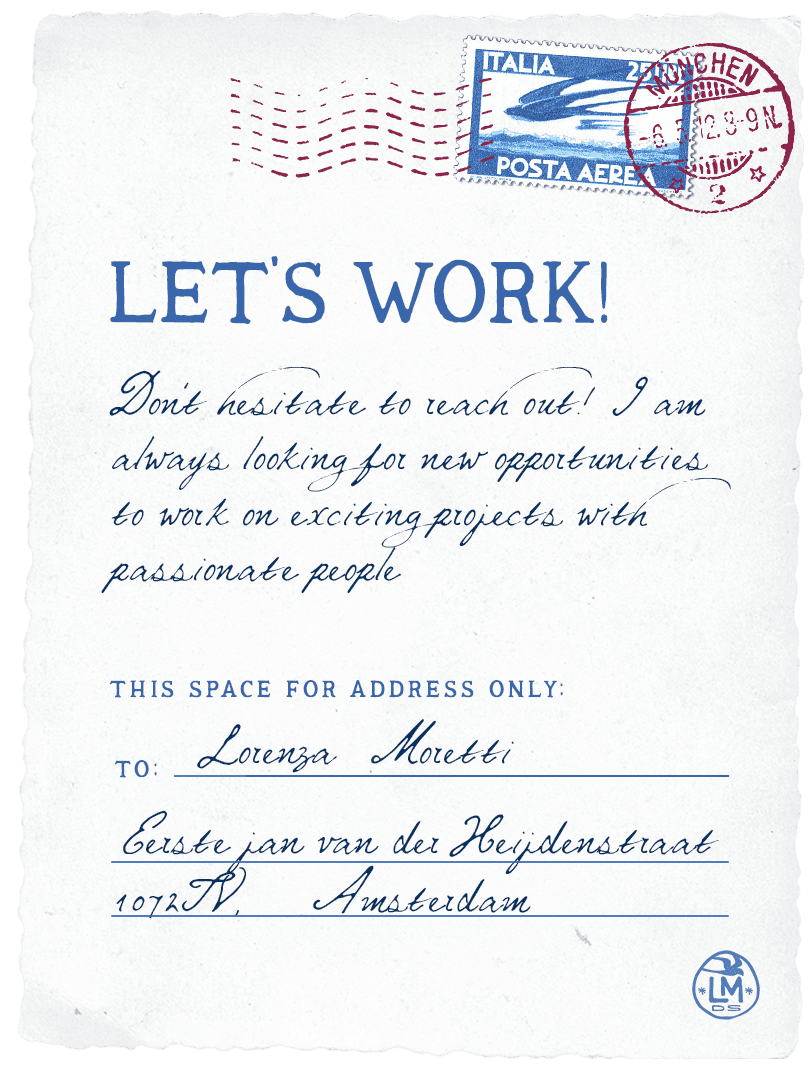 ITALIA
POSTA AEREA
MÜNCHEN
2
LET'S WORK!
Don't hesitate to reach out! I am
always looking for new opportunities
to work on exciting projects with
passionate people
THIS SPACE FOR ADDRESS ONLY:
TO: Lorenza Moretti
Eerste jan van der Heijdenstraat
1072TV, Amsterdam
LM
DS